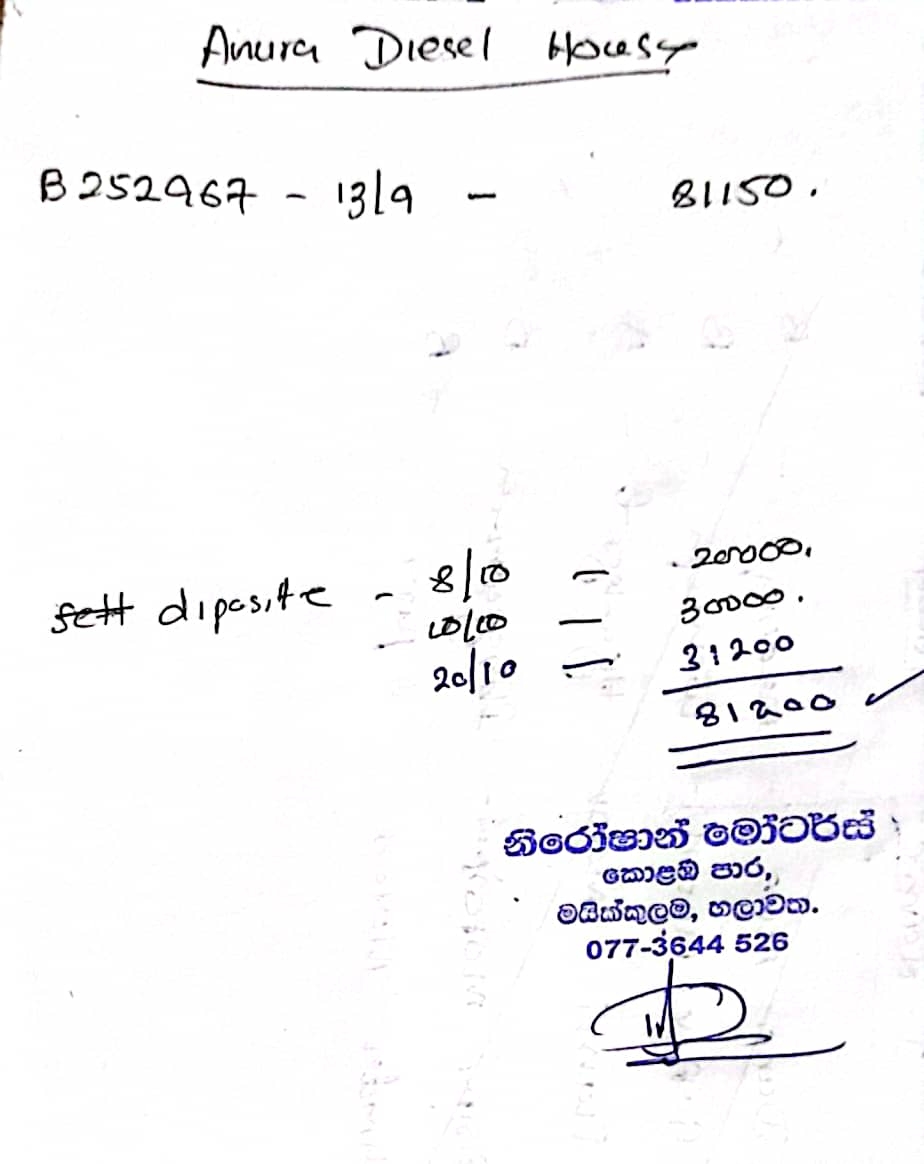 Anura Diesel House
B 252967 - 13/9 - 81150.
sett diposite - 8/10 - 20000.
10/10 - 30000.
20/10 - 31200
81200
නිරෝෂාන් මෝටර්ස්
කොළඹ පාර,
මයික්කුලම, හලාවත.
077-3644 526